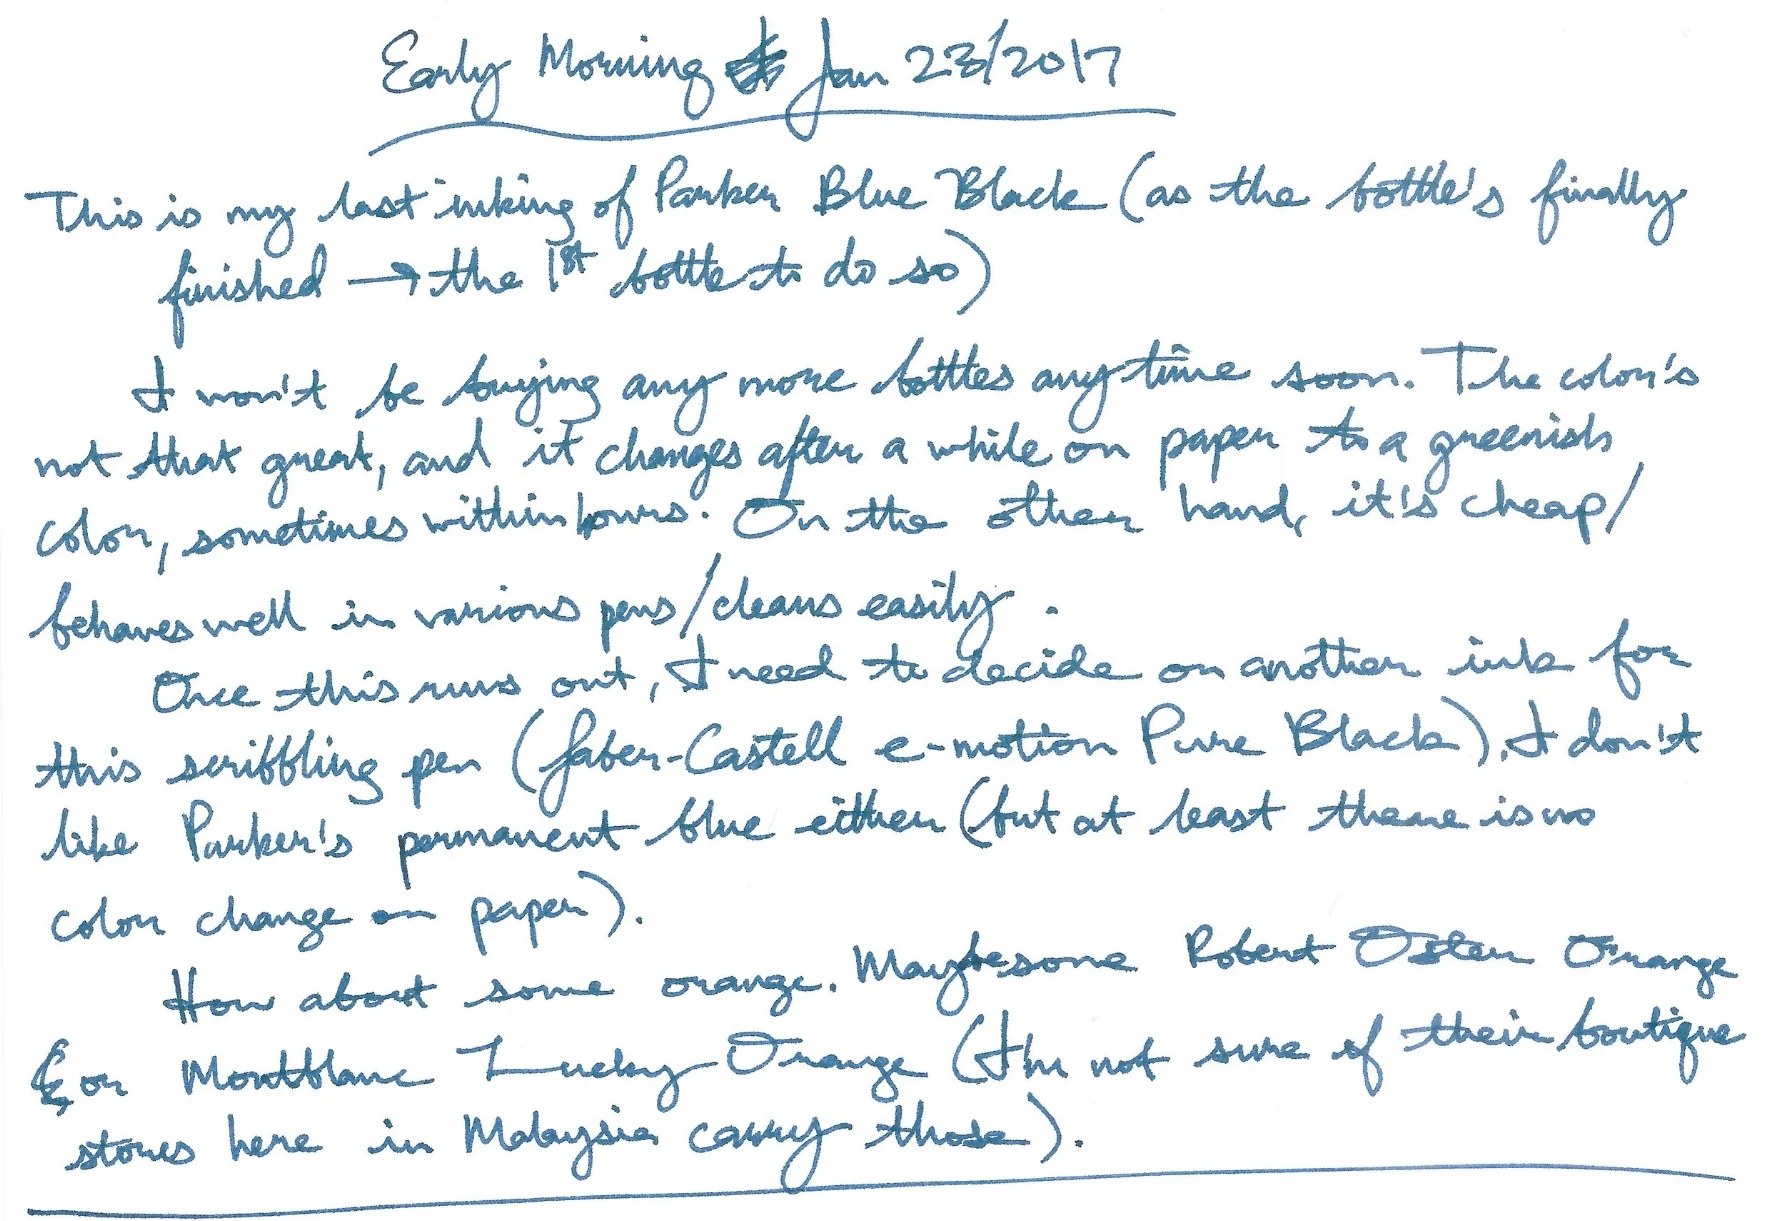 Early Morning Jan 23/2017
This is my last inking of Parker Blue Black (as the bottle's finally
finished → the 1st bottle to do so)
I won't be buying any more bottles anytime soon. The color's
not that great, and it changes after a while on paper to a greenish
color, sometimes within hours. On the other hand, it's cheap/
behaves well in various pens/cleans easily.
Once this runs out, I need to decide on another ink for
this scribbling pen (Faber-Castell e-motion Pure Black). I don't
like Parker's permanent blue either (but at least there is no
color change on paper).
How about some orange. Maybe some Robert Oster Orange
or Montblanc Lucky Orange (I'm not sure if their boutique
stores here in Malaysia carry those).